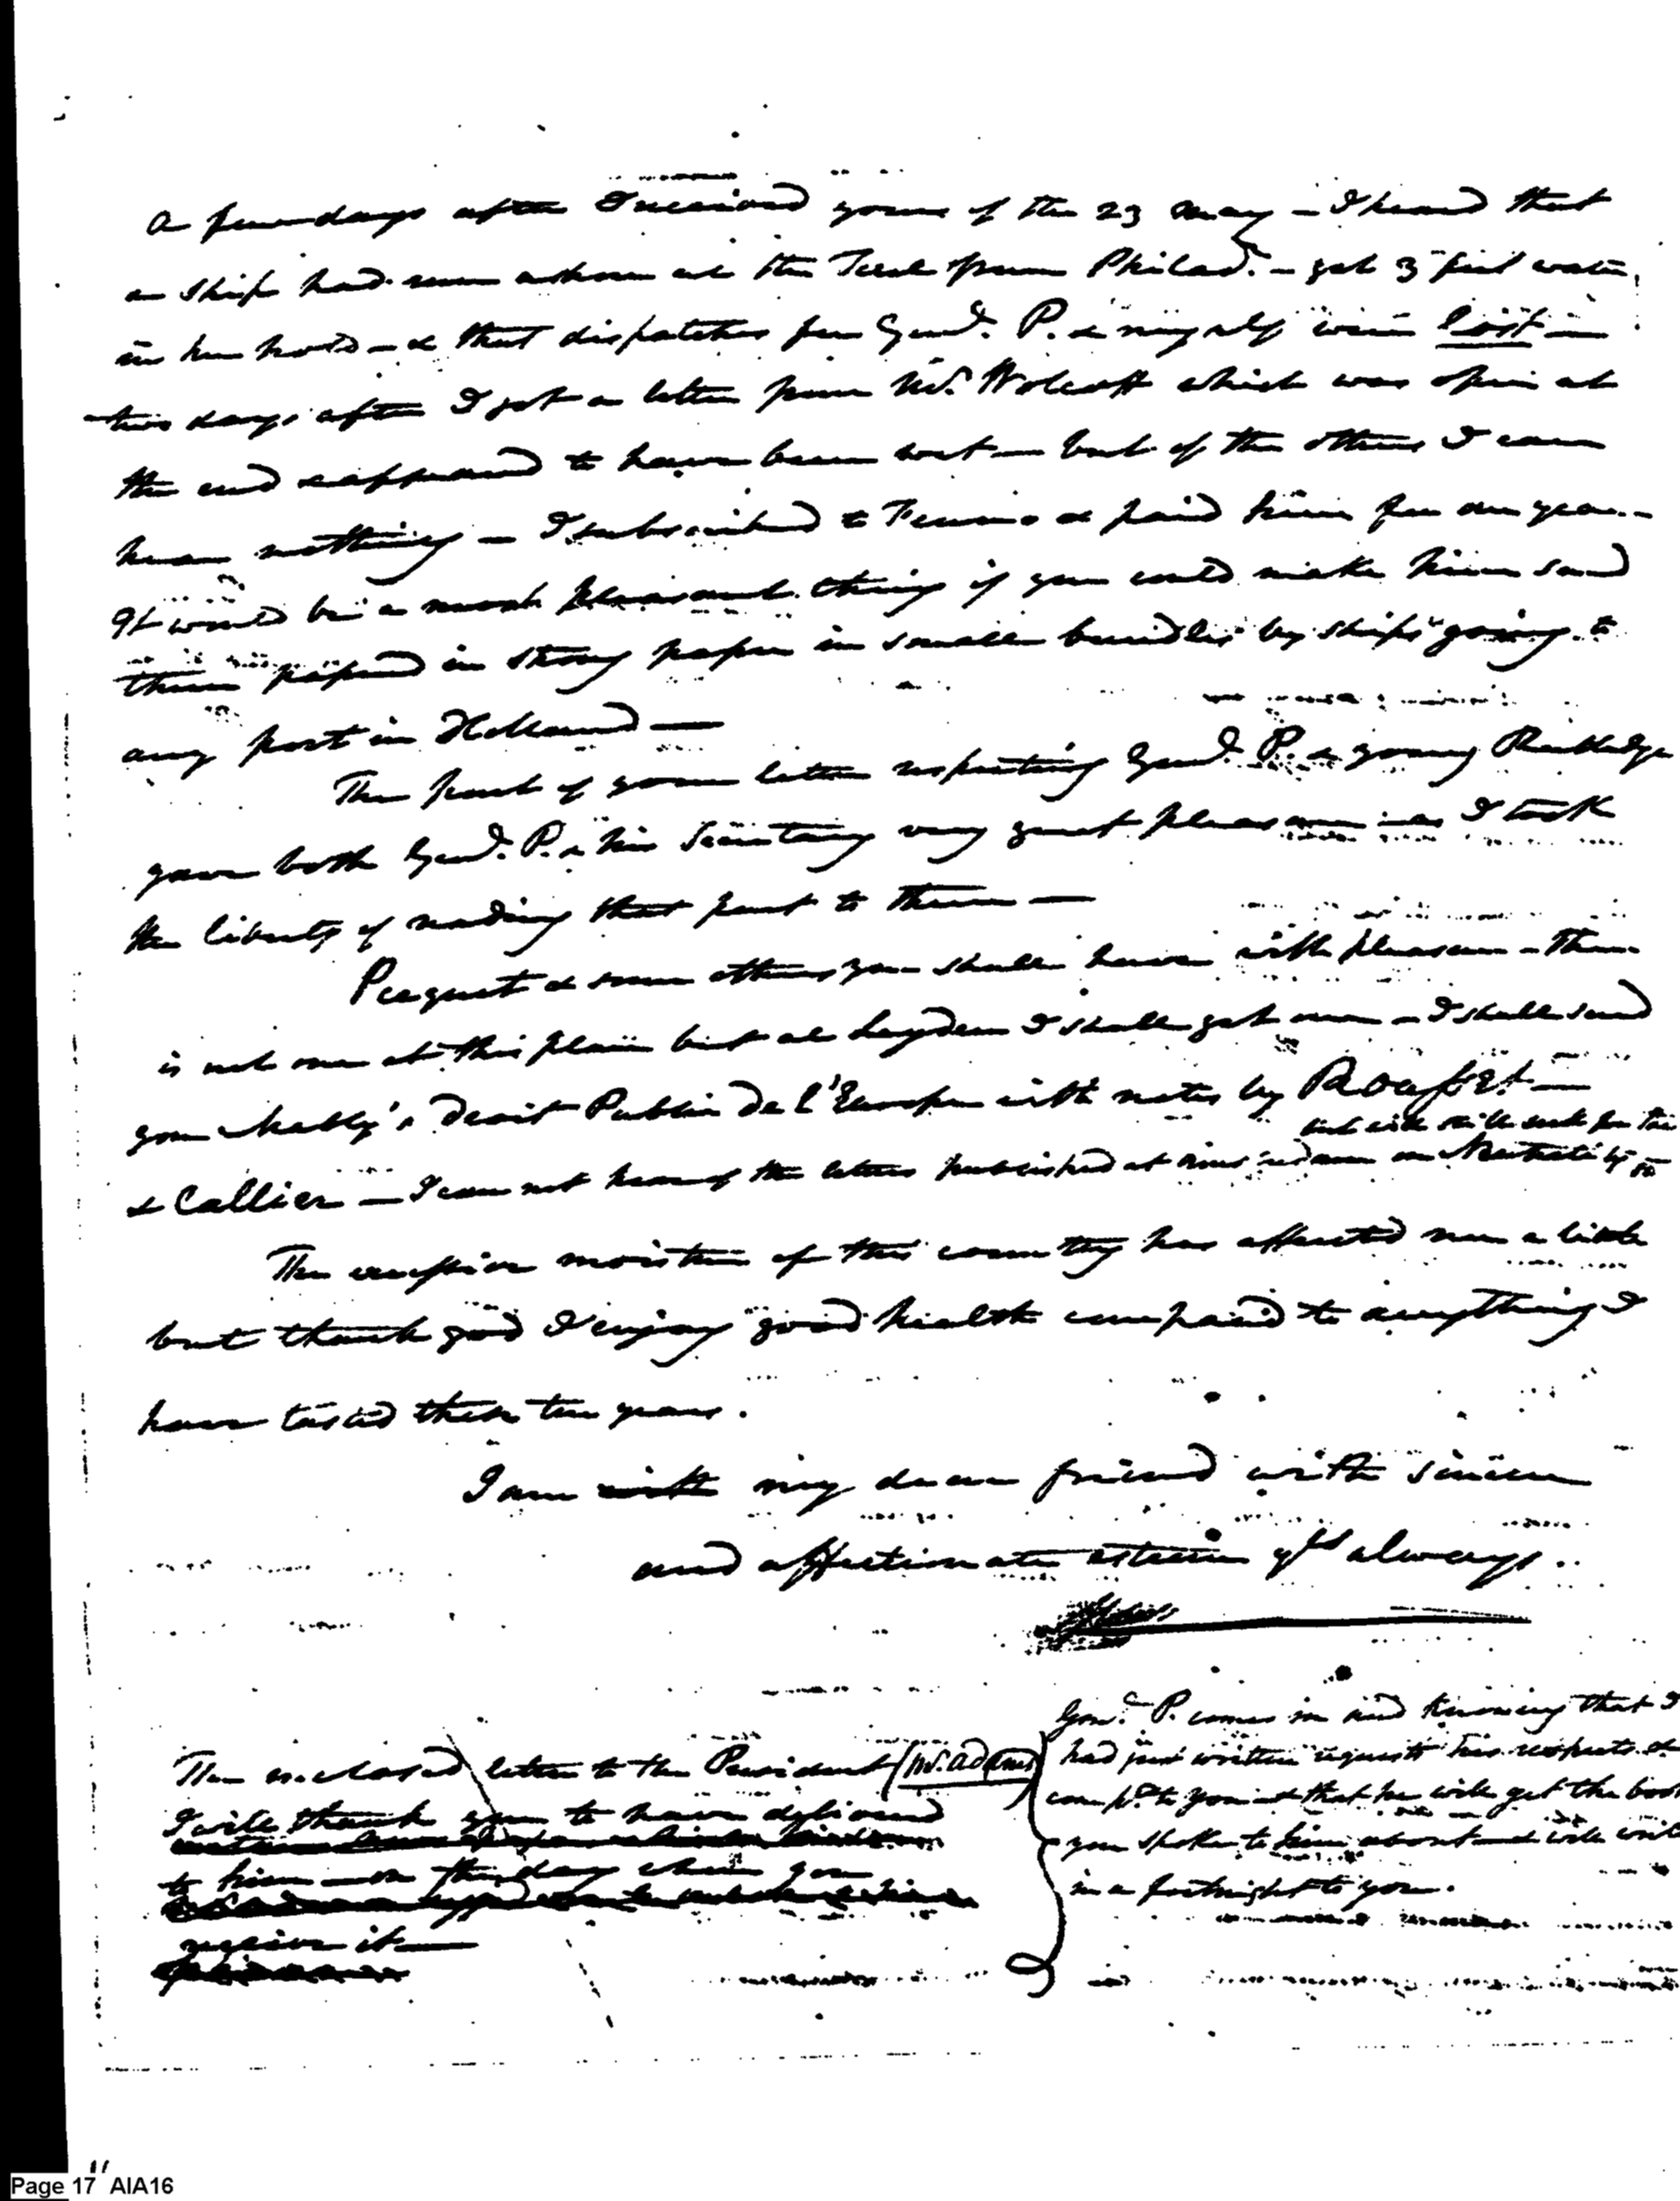 A few days after I received yours of the 23 May – I heard that
a ship had run ashore at the Texel from Philad. – got 3 feet water
in her hold – & that dispatches for Genl. P. & myself were lost –
two days after I got a letter from Mr. Wolcott which was open at
the end & appeared to have been wet – but of the others I can
hear nothing – I subscribed to Fenno & paid him for one year. –
It would be a most pleasant thing if you could make him send
them papered in strong paper in small bundles by ships going to
any port in Holland —
The part of your letter respecting Genl. P. & young Rutledge
gave both Genl. P. & his Secretary very great pleasure as I took
the liberty of reading that part to them —
Pecquet & some others you shall have with pleasure – There
is not one at this place but at Leyden I shall get one – I shall send
you Mably's Droit Public De l'Europe with notes by Rousset –
but will still seek for the
& Callier – I can not hear of the letters published at on Neutrality
The excessive moisture of this country has affected me a little
but thank god I enjoy good health compared to anything I
have tasted these ten years.
I am with my dear friend with sincere
and affectionate esteem yrs always..
The enclosed letter to the President (Mr. Adams)
I will thank you to have delivered
to him – on the day when you
receive it —
Genl. P. comes in and knowing that I
had just written requests his respects &
compts. to you & that he will get the book
you spoke to him about and will write
in a fortnight to you.
Page 17 AIA16